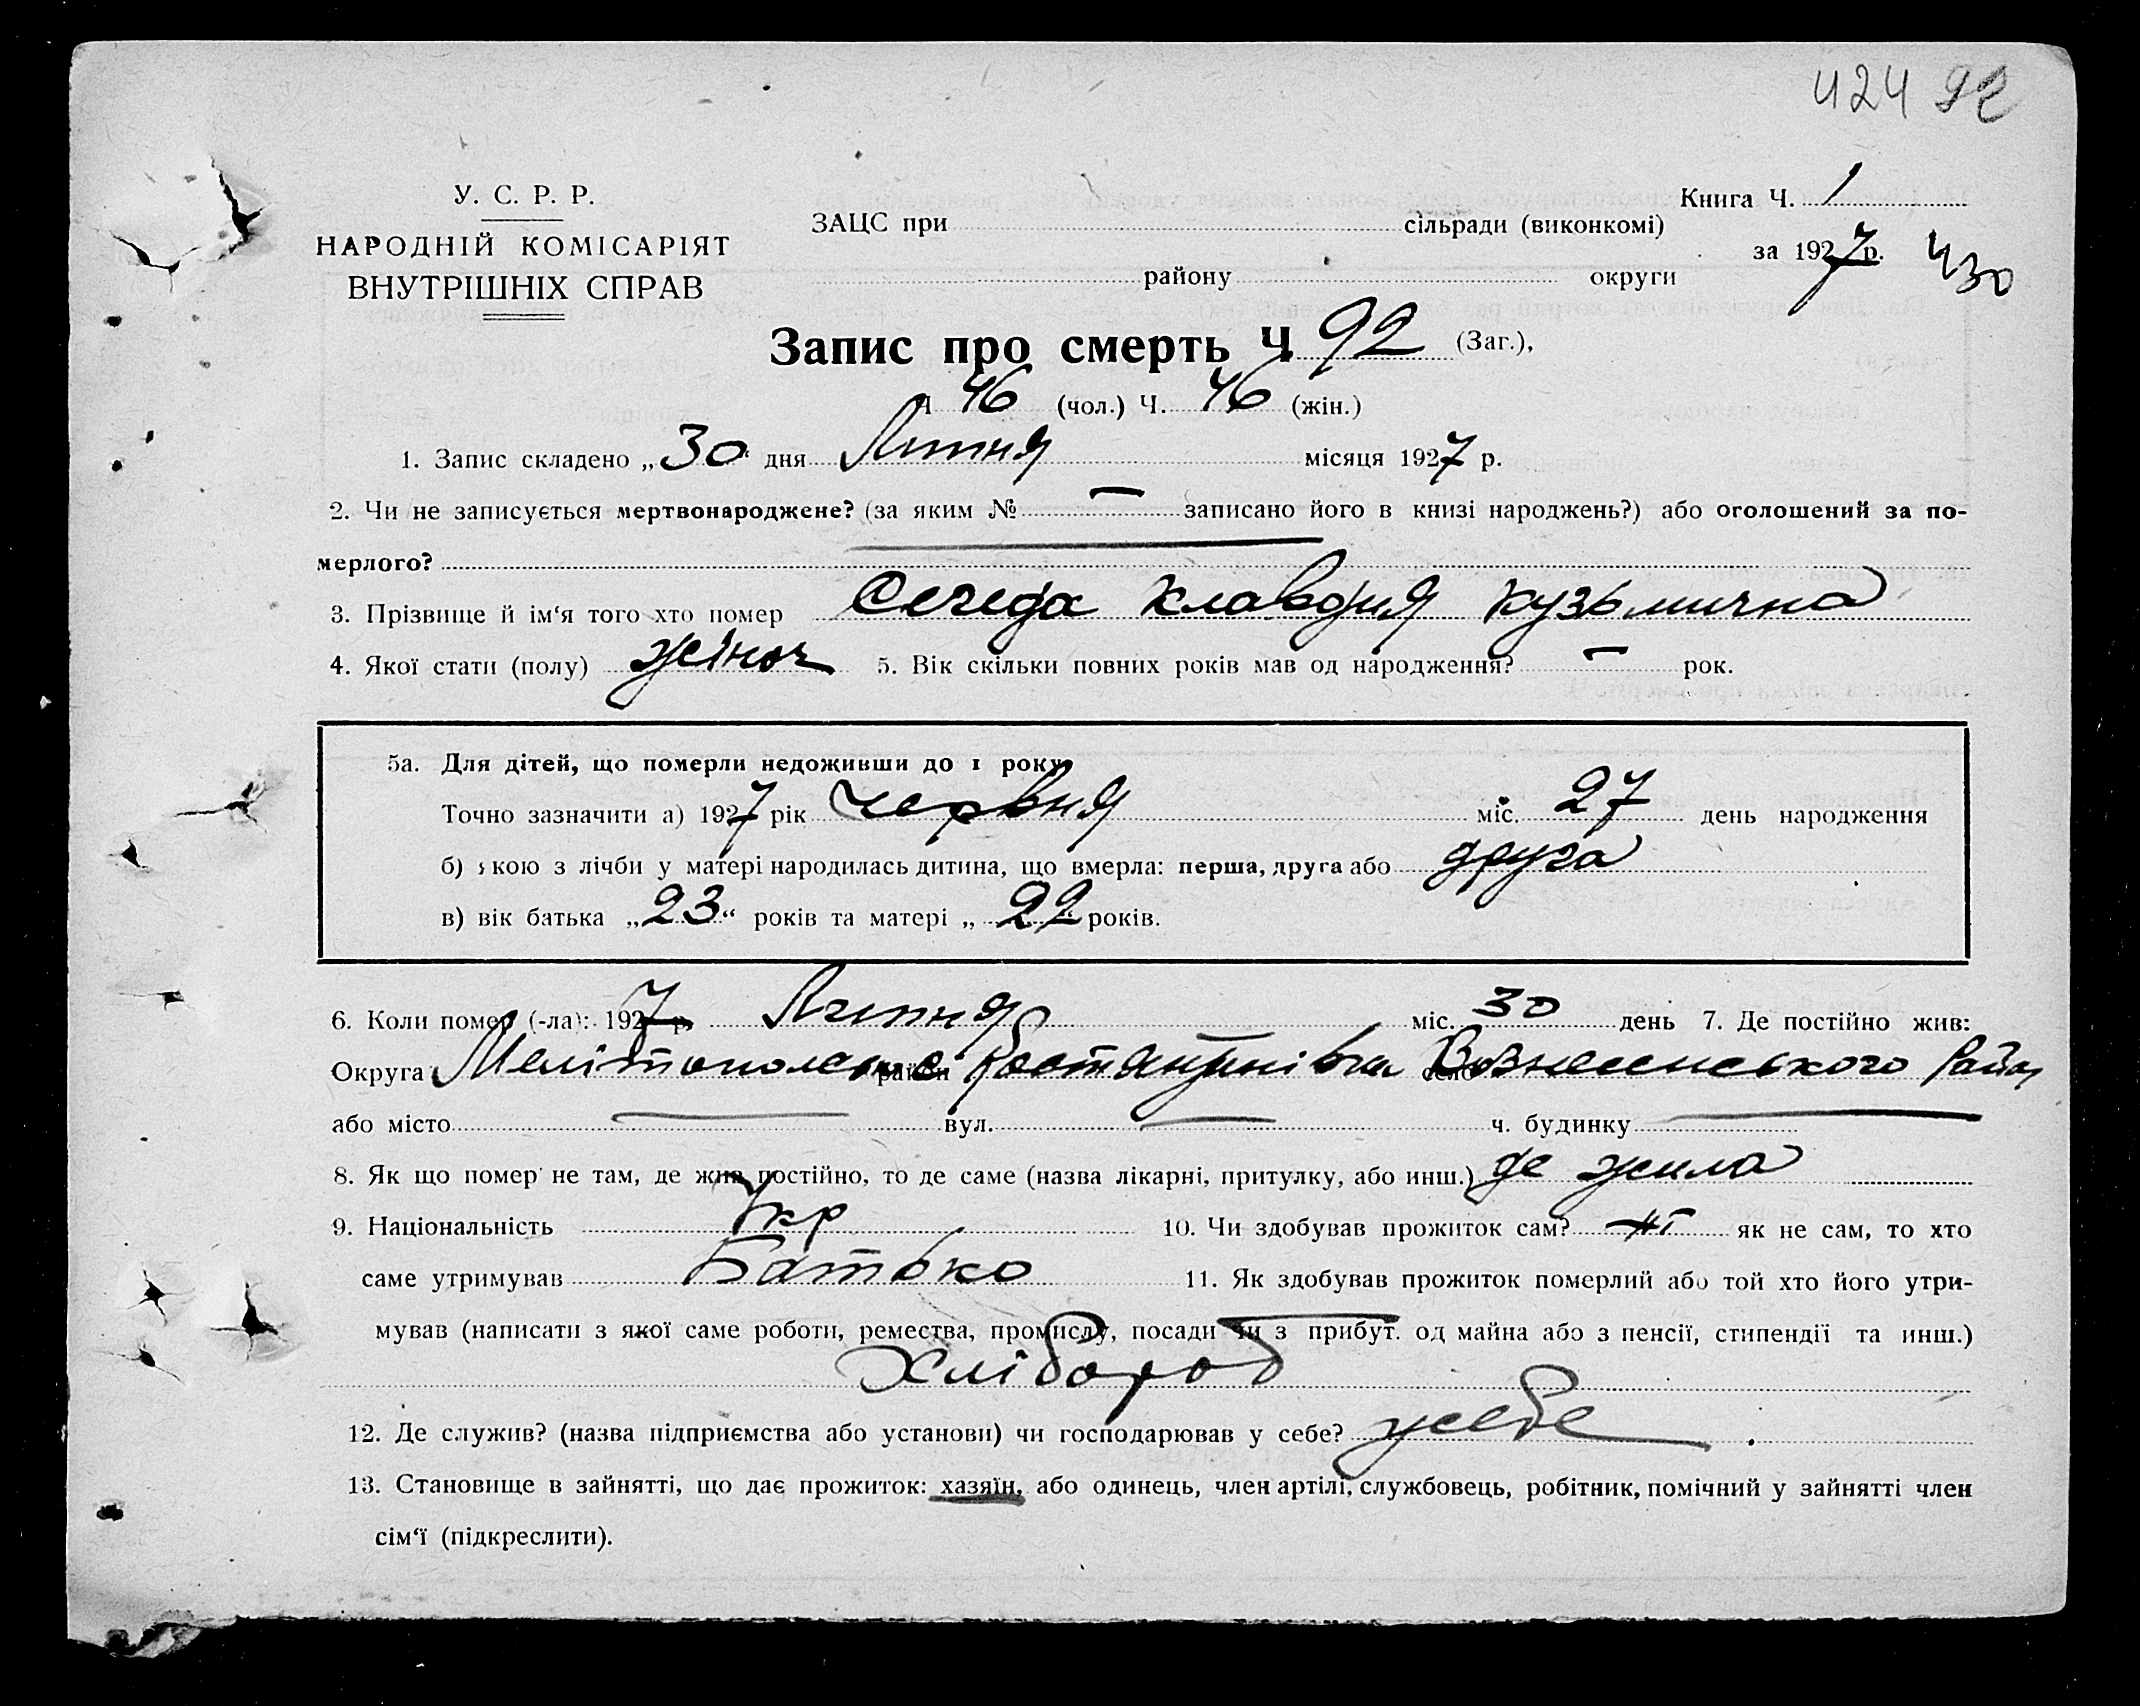 424 92
У. С. Р. Р.
НАРОДНІЙ КОМІСАРІЯТ
ВНУТРІШНІХ СПРАВ
ЗАЦС при сільради (виконкомі)
району округи
Книга Ч. 1
за 1927 р. 430
Запис про смерть Ч. 92 (Заг.),
Ч 46 (чол.) Ч. 46 (жін.)
1. Запис складено „30“ дня Липня місяця 1927 р.
2. Чи не записується мертвонароджене? (за яким № — записано його в книзі народжень?) або оголошений за по-
мерлого?
3. Прізвище й ім‘я того хто помер Середа Клавдия Кузьмична
4. Якої стати (полу) жіноч 5. Вік скільки повних років мав од народження? — рок.
5а. Для дітей, що померли недоживши до 1 року.
Точно зазначити а) 1927 рік червня міс. 27 день народження
б) якою з лічби у матері народилась дитина, що вмерла: перша, друга або друга
в) вік батька „23“ років та матері „22“ років.
6. Коли помер (-ла): 1927 р. Липня міс. 30 день 7. Де постійно жив:
Округа Мелітопольське район Костянтинівка село Вознесенського Району
або місто — вул. — ч. будинку —
8. Як що помер не там, де жив постійно, то де саме (назва лікарні, притулку, або инш.) де жила
9. Національність Укр 10. Чи здобував прожиток сам? ні як не сам, то хто
саме утримував Батько 11. Як здобував прожиток померлий або той хто його утри-
мував (написати з якої саме роботи, ремества, промислу, посади чи з прибут. од майна або з пенсії, стипендії та инш.)
Хлібороб
12. Де служив? (назва підприємства або установи) чи господарював у себе? у себе
13. Становище в зайнятті, що дає прожиток: хазяїн, або одинець, член артілі, службовець, робітник, помічний у зайнятті член
сім‘ї (підкреслити).